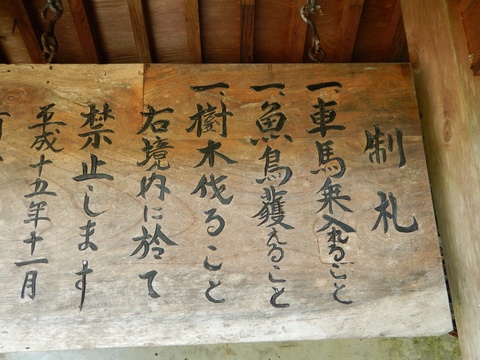 制札
一、車馬乗入れること
一、魚鳥獲えること
一、樹木伐ること
右境内に於て
禁止します
平成十五年十一月